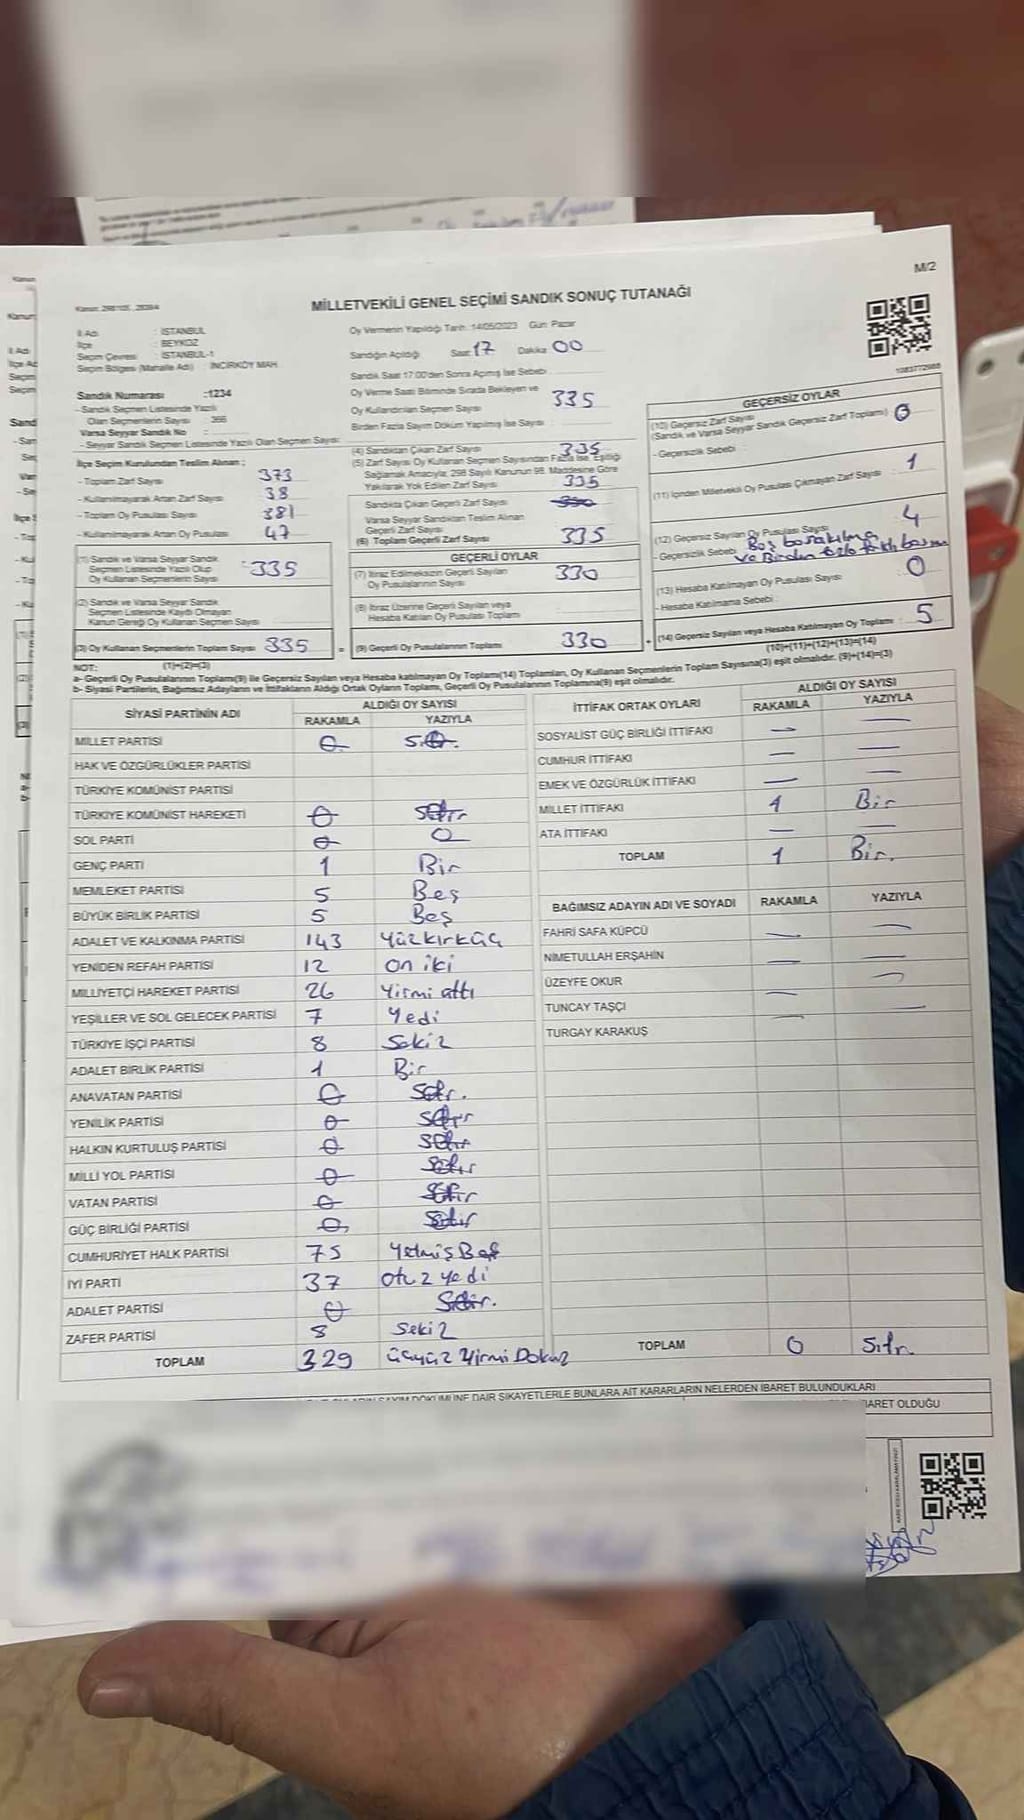 M/2
Kanun: 298/105, 2839/4
MİLLETVEKİLİ GENEL SEÇİMİ SANDIK SONUÇ TUTANAĞI
1083772985
İl Adı : İSTANBUL
İlçe : BEYKOZ
Seçim Çevresi : İSTANBUL-1
Seçim Bölgesi (Mahalle Adı) : İNCİRKÖY MAH.
Sandık Numarası :1234
- Sandık Seçmen Listesinde Yazılı
Olan Seçmenlerin Sayısı : 366
Varsa Seyyar Sandık No :
- Seyyar Sandık Seçmen Listesinde Yazılı Olan Seçmen Sayısı:
İlçe Seçim Kurulundan Teslim Alınan ;
- Toplam Zarf Sayısı 373
- Kullanılmayarak Artan Zarf Sayısı 38
- Toplam Oy Pusulası Sayısı 381
- Kullanılmayarak Artan Oy Pusulası 47
(1) Sandık ve Varsa Seyyar Sandık
Seçmen Listesinde Yazılı Olup
Oy Kullanan Seçmenlerin Sayısı : 335
(2) Sandık ve Varsa Seyyar Sandık
Seçmen Listesinde Kaydı Olmayan
Kanun Gereği Oy Kullanan Seçmen Sayısı :
(3) Oy Kullanan Seçmenlerin Toplam Sayısı 335
(1)+(2)=(3)
Oy Vermenin Yapıldığı Tarih: 14/05/2023 Gün: Pazar
Sandığın Açıldığı Saat: 17 Dakika 00
Sandık Saat 17:00'den Sonra Açılmış İse Sebebi :
Oy Verme Saati Bitiminde Sırada Bekleyen ve
Oy Kullandırılan Seçmen Sayısı : 335
Birden Fazla Sayım Döküm Yapılmış İse Sayısı :
(4) Sandıktan Çıkan Zarf Sayısı : 335
(5) Zarf Sayısı Oy Kullanan Seçmen Sayısından Fazla İse, Eşitliği
Sağlamak Amacıyla; 298 Sayılı Kanunun 98. Maddesine Göre
Yakılarak Yok Edilen Zarf Sayısı : 335
Sandıkta Çıkan Geçerli Zarf Sayısı
Varsa Seyyar Sandıktan Teslim Alınan
Geçerli Zarf Sayısı
(6) Toplam Geçerli Zarf Sayısı : 335
GEÇERLİ OYLAR
(7) İtiraz Edilmeksizin Geçerli Sayılan
Oy Pusulalarının Sayısı : 330
(8) İtiraz Üzerine Geçerli Sayılan veya
Hesaba Katılan Oy Pusulası Toplamı
= (9) Geçerli Oy Pusulalarının Toplamı 330
GEÇERSİZ OYLAR
(10) Geçersiz Zarf Sayısı
(Sandık ve Varsa Seyyar Sandık Geçersiz Zarf Toplamı) 0
- Geçersizlik Sebebi :
(11) İçinden Milletvekili Oy Pusulası Çıkmayan Zarf Sayısı : 1
(12) Geçersiz Sayılan Oy Pusulası Sayısı : 4
- Geçersizlik Sebebi : Boş bırakılma
ve Birden fazla
(13) Hesaba Katılmayan Oy Pusulası Sayısı 0
- Hesaba Katılmama Sebebi :
+ (14) Geçersiz Sayılan veya Hesaba Katılmayan Oy Toplamı : 5
(10)+(11)+(12)+(13)=(14)
NOT:
a- Geçerli Oy Pusulalarının Toplamı(9) ile Geçersiz Sayılan veya Hesaba katılmayan Oy Toplamı(14) Toplamları, Oy Kullanan Seçmenlerin Toplam Sayısına(3) eşit olmalıdır. (9)+(14)=(3)
b- Siyasi Partilerin, Bağımsız Adayların ve İttifakların Aldığı Ortak Oyların Toplamı, Geçerli Oy Pusulalarının Toplamına(9) eşit olmalıdır.
SİYASİ PARTİNİN ADI ALDIĞI OY SAYISI
RAKAMLA YAZIYLA
MİLLET PARTİSİ 0
HAK VE ÖZGÜRLÜKLER PARTİSİ
TÜRKİYE KOMÜNİST PARTİSİ
TÜRKİYE KOMÜNİST HAREKETİ 0 Sıfır
SOL PARTİ 0 0
GENÇ PARTİ 1 Bir
MEMLEKET PARTİSİ 5 Beş
BÜYÜK BİRLİK PARTİSİ 5 Beş
ADALET VE KALKINMA PARTİSİ 143 Yüzkırküç
YENİDEN REFAH PARTİSİ 12 on iki
MİLLİYETÇİ HAREKET PARTİSİ 26 Yirmi altı
YEŞİLLER VE SOL GELECEK PARTİSİ 7 Yedi
TÜRKİYE İŞÇİ PARTİSİ 8 Sekiz
ADALET BİRLİK PARTİSİ 1 Bir
ANAVATAN PARTİSİ 0 Sıfır.
YENİLİK PARTİSİ 0 Sıfır
HALKIN KURTULUŞ PARTİSİ 0 Sıfır
MİLLİ YOL PARTİSİ 0 Sıfır
VATAN PARTİSİ 0 Sıfır
GÜÇ BİRLİĞİ PARTİSİ 0 Sıfır
CUMHURİYET HALK PARTİSİ 75 Yetmiş Beş
İYİ PARTİ 37 Otuz yedi
ADALET PARTİSİ 0 Sıfır.
ZAFER PARTİSİ 8 Sekiz
TOPLAM 329 üçyüz Yirmi Dokuz
İTTİFAK ORTAK OYLARI ALDIĞI OY SAYISI
RAKAMLA YAZIYLA
SOSYALİST GÜÇ BİRLİĞİ İTTİFAKI — —
CUMHUR İTTİFAKI — —
EMEK VE ÖZGÜRLÜK İTTİFAKI — —
MİLLET İTTİFAKI 1 Bir
ATA İTTİFAKI — —
TOPLAM 1 Bir.
BAĞIMSIZ ADAYIN ADI VE SOYADI RAKAMLA YAZIYLA
FAHRİ SAFA KÜPCÜ — —
NİMETULLAH ERŞAHİN — —
ÜZEYFE OKUR — —
TUNCAY TAŞÇI — —
TURGAY KARAKUŞ
TOPLAM 0 Sıfır
SAYIM DÖKÜMÜNE DAİR ŞİKAYETLERLE BUNLARA AİT KARARLARIN NELERDEN İBARET BULUNDUKLARI
İBARET OLDUĞU